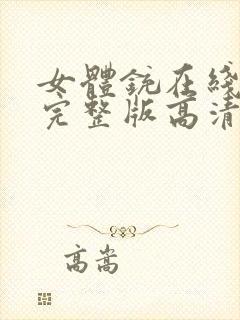 女體銃在綫
完整版高清
高嵩